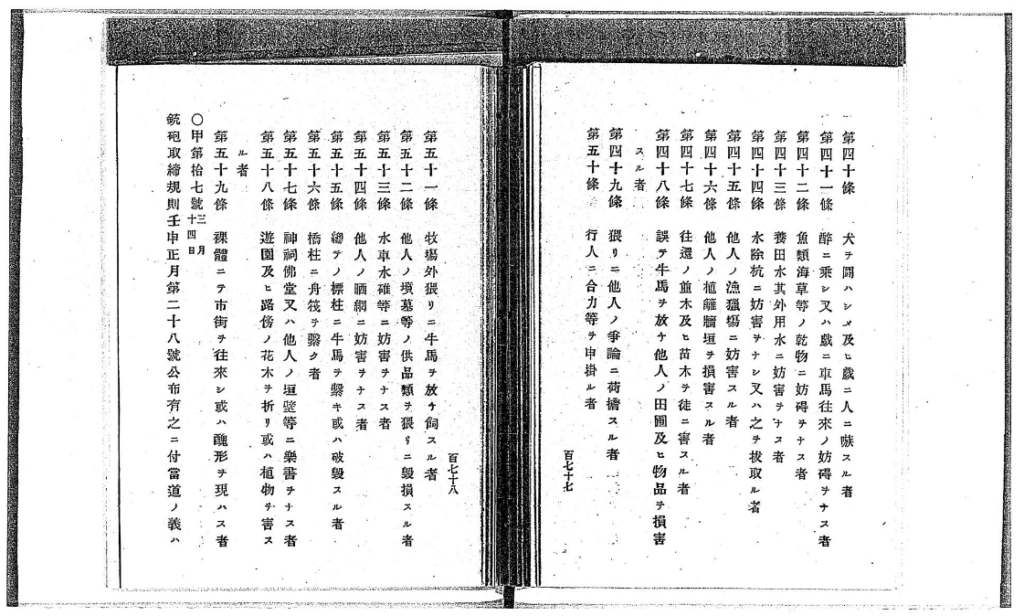 第四十條　犬ヲ鬪ハシメ及ヒ戯ニ人ニ嗾スル者
第四十一條　醉ニ乘シ又ハ戯ニ車馬往來ノ妨碍ヲナス者
第四十二條　魚類海草等ノ乾物ニ妨碍ヲナス者
第四十三條　養田水其外用水ニ妨害ヲナス者
第四十四條　水除杭ニ妨害ヲナシ又ハ之ヲ拔取ル者
第四十五條　他人ノ漁獵塲ニ妨害スル者
第四十六條　他人ノ植籬牆垣ヲ損害スル者
第四十七條　往還ノ並木及ヒ苗木ヲ徒ニ害スル者
第四十八條　誤テ牛馬ヲ放ケ他人ノ田圃及ヒ物品ヲ損害
スル者
第四十九條　猥リニ他人ノ爭論ニ荷擔スル者
第五十條　行人ニ合力等ヲ申掛ル者
百七十七
第五十一條　牧塲外猥リニ牛馬ヲ放ケ飼スル者
第五十二條　他人ノ墳墓等ノ供品類ヲ猥リニ毀損スル者
第五十三條　水車水碓等ニ妨害ヲナス者
第五十四條　他人ノ晒網ニ妨害ヲナス者
第五十五條　總テノ標柱ニ牛馬ヲ繫キ或ハ破毀スル者
第五十六條　橋柱ニ舟筏ヲ繫ク者
第五十七條　神祠佛堂又ハ他人ノ垣壁等ニ樂書ヲナス者
第五十八條　遊園及ヒ路傍ノ花木ヲ折リ或ハ植物ヲ害ス
ル者
第五十九條　裸體ニテ市街ヲ往來シ或ハ醜形ヲ現ハス者
〇甲第拾七號三月十四日
銃砲取締規則壬申正月第二十八號公布有之ニ付當道ノ義ハ
百七十八